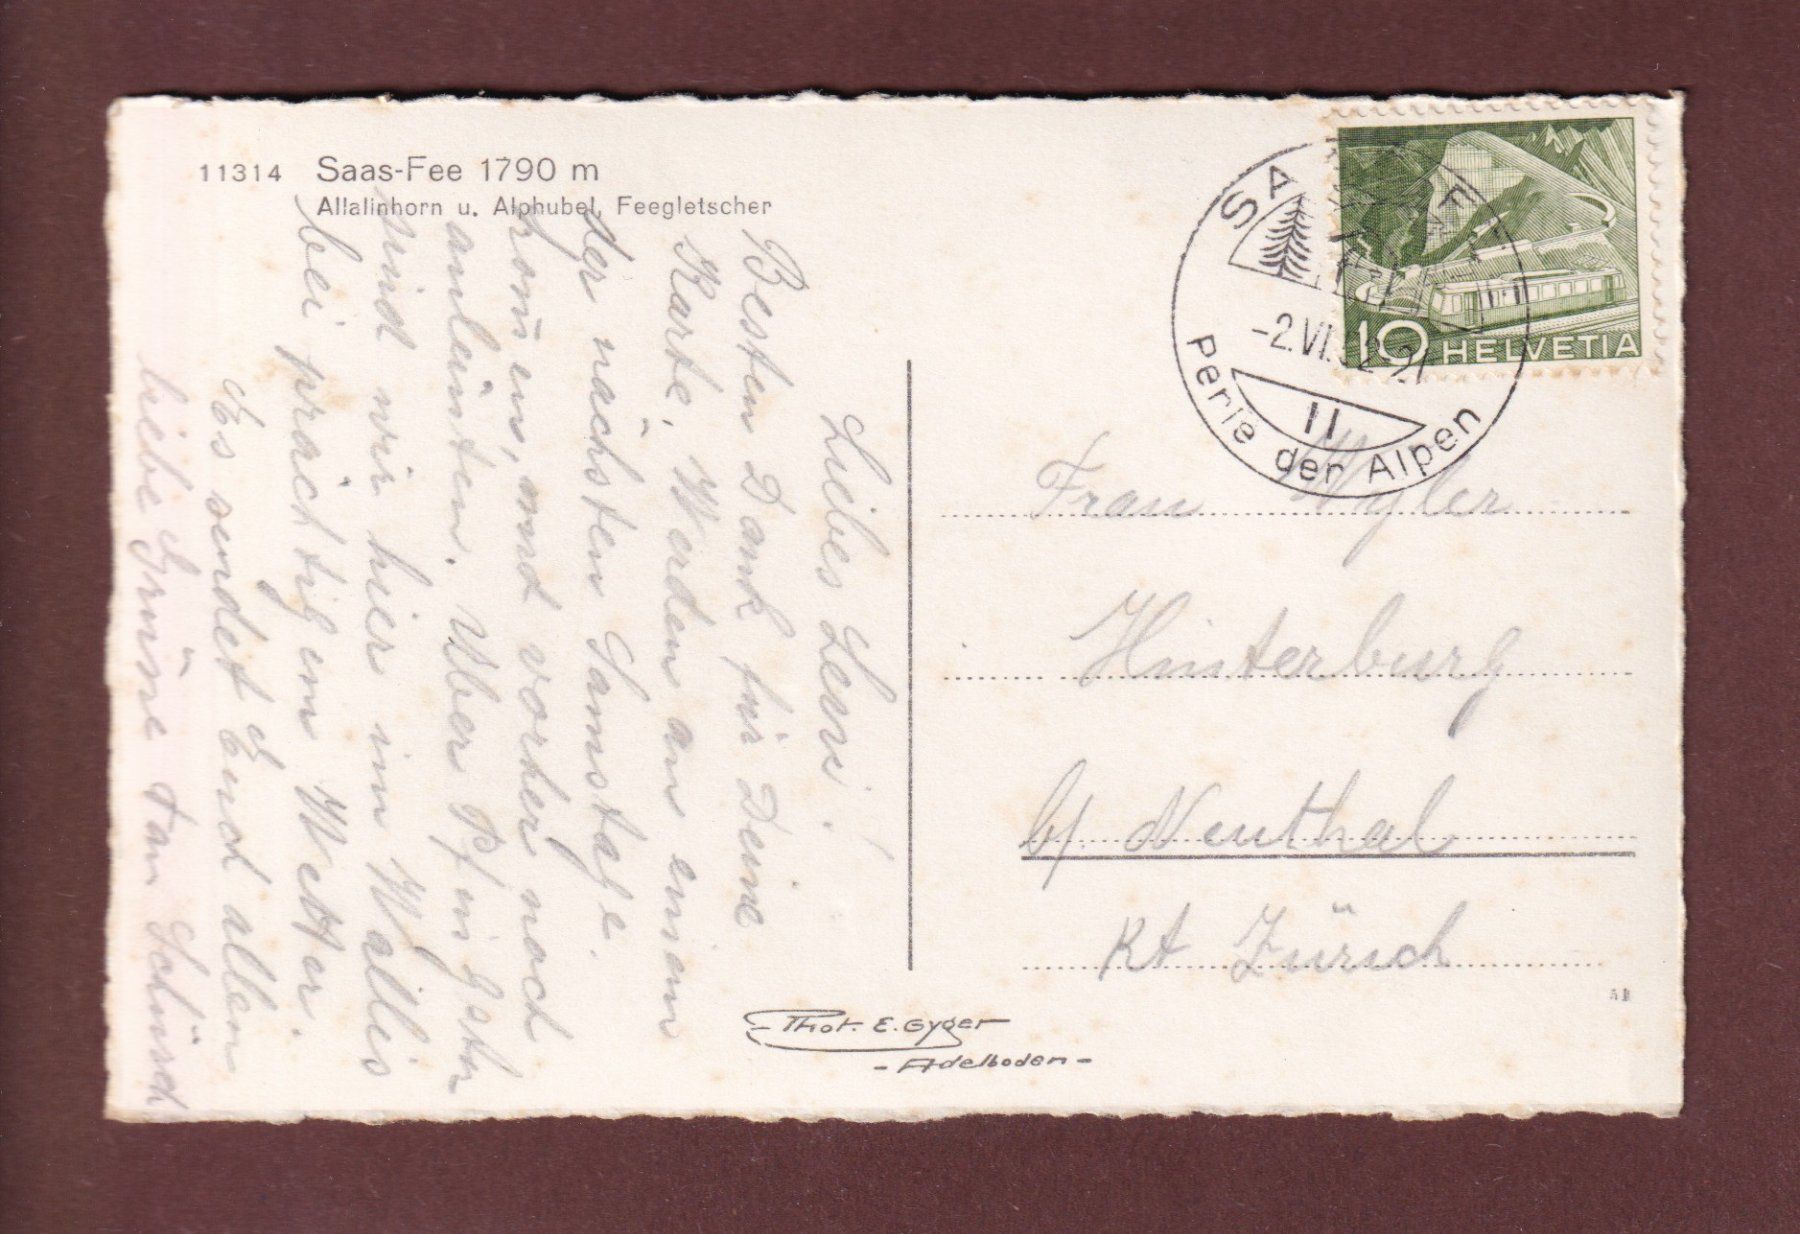 11314 Saas-Fee 1790 m
Allalinhorn u. Alphubel, Feegletscher
Liebes Leni!
Besten Dank für Deine
Karte. Werden an einem
der nächsten Samstage
kom̄en, und vorher noch
anläuten. Über Pfingsten
sind wir hier im Wallis
bei prächtigem Wetter.
Es sendet Euch allen
liebe Grüsse Fam.
SAAS-FEE
-2.VI.52-21
II
Perle der Alpen
10 HELVETIA
Frau Wyler
Hinterburg
b/ Neuthal
Kt Zürich
Phot. E. Gyger
- Adelboden -